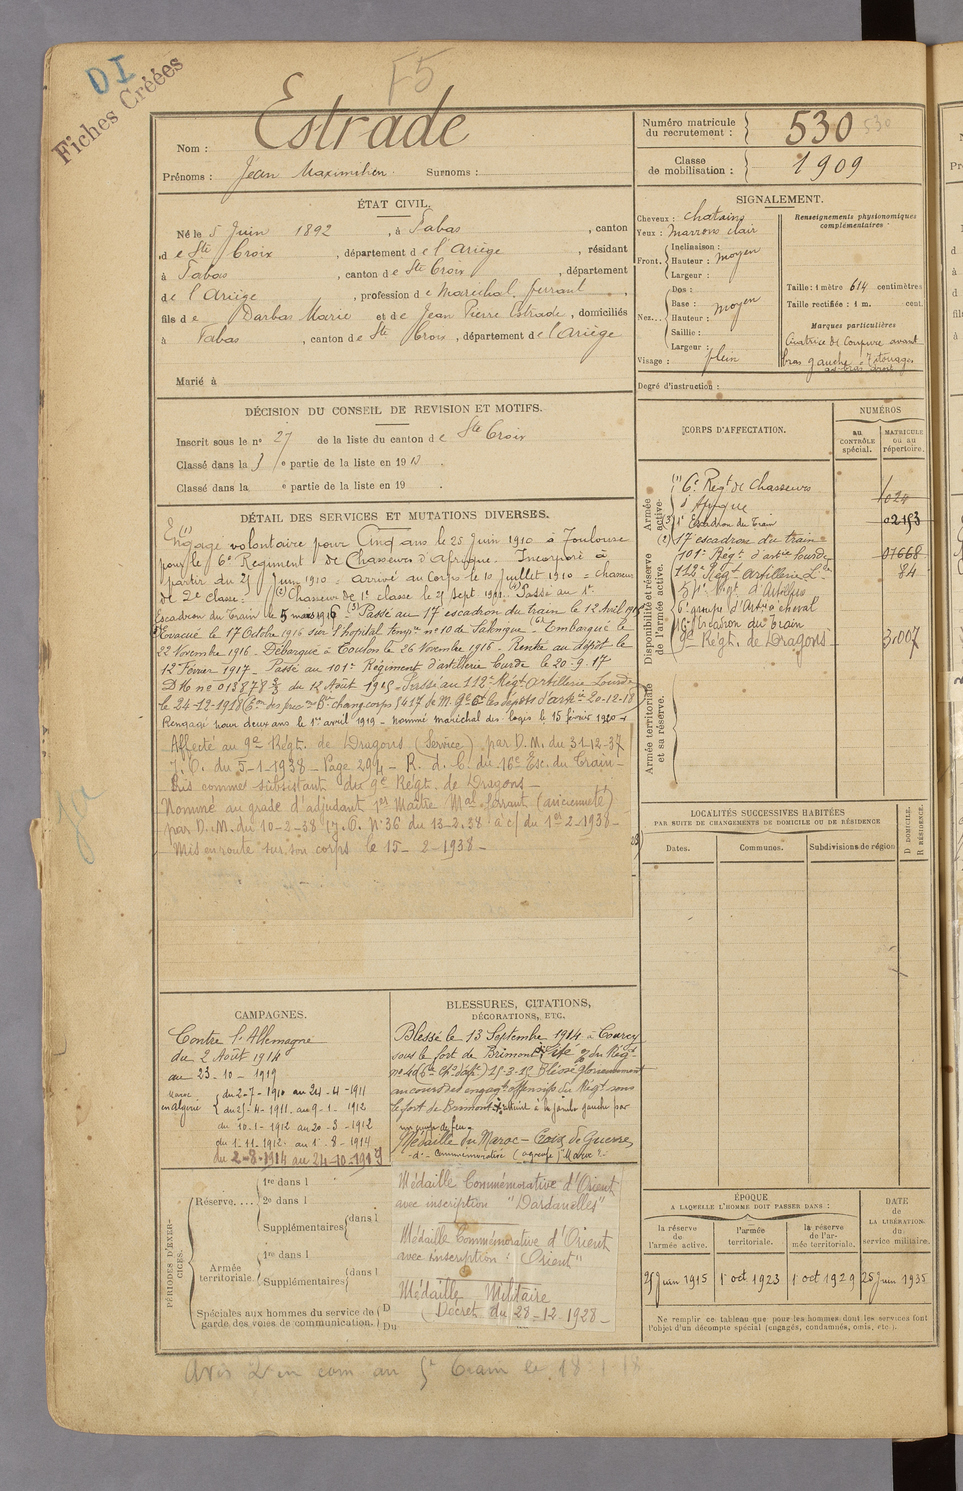 DI
Fiches Créées
F5
Nom : Estrade
Prénoms : Jean Maximilien Surnoms :
ÉTAT CIVIL.
Né le 5 Juin 1892, à Tabas, canton
de Ste Croix, département de l'Ariège, résidant
à Tabas, canton de Ste Croix, département
de l'Ariège, profession de Maréchal ferrant,
fils de Darbas Marie et de Jean Pierre Estrade, domiciliés
à Tabas, canton de Ste Croix, département de l'Ariège
Marié à
DÉCISION DU CONSEIL DE REVISION ET MOTIFS.
Inscrit sous le no 27 de la liste du canton de Ste Croix
Classé dans la 3 e partie de la liste en 1912.
Classé dans la e partie de la liste en 19 .
DÉTAIL DES SERVICES ET MUTATIONS DIVERSES.
Engagé volontaire pour Cinq ans le 25 Juin 1910 à Toulouse
pour le 6e Regiment de Chasseurs d'Afrique. Incorporé à
partir du 25 Juin 1910 = arrivé au Corps le 10 Juillet 1910 = chasseur
de 2e classe. (2) Chasseur de 1e classe le 25 Sept 1911. Passé au 1er
Escadron du Train le 5 mars 1916 (3) Passé au 17 escadron du train le 12 Avril 1916
Evacué le 17 Octobre 1916 sur l'hopital tempre no 10 de Salonique (6) Embarqué le
22 Novembre 1916 - Débarqué à Toulon le 26 Novembre 1916 - Rentré au dépôt le
12 Février 1917 - Passé au 101e Régiment d'artillerie Lourde le 20-9-17
DM no 013878 2/3 du 12 Août 1915 - Passé au 112e Régt Artillerie Lourde
le 24-12-1918
Rengagé pour deux ans le 1er avril 1919 - nommé maréchal des logis le 15 février 1920
Affecté au 9e Régt. de Dragons (Service) par D.M. du 31-12-37
J.O. du 5-1-1938 - Page 294 - R. d. C. du 16e Esc. du Train -
Pris comme subsistant du 9e Régt. de Dragons -
Nommé au grade d'adjudant 1er Maître Mal ferrant (ancienneté)
par D.M. du 10-2-38 (J.O. No 36 du 13-2-38 à c/ du 1er 2-1938 -
Mis en route sur son corps le 15-2-1938 -
CAMPAGNES.
Contre l'Allemagne
du 2 Août 1914
au 23-10-1919
Maroc du 2-7-1910 au 24-4-1911
en Algérie du 25-4-1911 au 9-1-1912
du 10-1-1912 au 20-3-1912
du 1-11-1912 au 1-8-1914
du 2-8-1914 au 24-10-1919
BLESSURES, CITATIONS,
DÉCORATIONS, ETC.
Blessé le 13 Septembre 1914 à Courcy
sous le fort de Brimont. Cité
Blessé glorieusement
au cours des engagts offensifs du Régt sous
le fort de Brimont, atteint à la jambe gauche par
un coup de feu.
Médaille du Maroc - Croix de Guerre
-d°- Commémorative (agrafe) Maroc
Médaille Commémorative d'Orient
avec inscription "Dardanelles"
Médaille Commémorative d'Orient
avec inscription : "Orient"
Médaille Militaire
(Décret du 28-12-1928 -
PÉRIODES D'EXERCICES.
Réserve.... 1re dans l
2e dans l
Supplémentaires dans l
Armée territoriale. 1re dans l
Supplémentaires dans l
Spéciales aux hommes du service de
garde des voies de communication. D
Du
Numéro matricule du recrutement : 530
530
Classe de mobilisation : 1909
SIGNALEMENT.
Cheveux : chatains
Yeux : marrons clair
Front. Inclinaison :
Hauteur : moyen
Largeur :
Nez... Dos :
Base : moyen
Hauteur :
Saillie :
Largeur :
Visage : plein
Renseignements physionomiques complémentaires
Taille : 1 mètre 614 centimètres
Taille rectifiée : 1 m. cent.
Marques particulières
Cicatrice de Coupure avant
bras gauche. Tatouages
Degré d'instruction :
CORPS D'AFFECTATION.
NUMÉROS
au CONTRÔLE spécial.
MATRICULE ou au répertoire.
Armée active.
(1) 6e Regt de Chasseurs
d'Afrique 1024
1e Escadron du Train 02153
Disponibilité et réserve de l'armée active.
(2) 17 escadron du train
101e Régt d'artie lourde 01668
112e Régt Artillerie Lde 84
6e groupe d'Artie à cheval
16e Escadron du Train
9e Régt. de Dragons 3.007
Armée territoriale et sa réserve.
LOCALITÉS SUCCESSIVES HABITÉES
PAR SUITE DE CHANGEMENTS DE DOMICILE OU DE RÉSIDENCE
Dates.
Communes.
Subdivisions de région
D DOMICILE.
R RÉSIDENCE.
ÉPOQUE
A LAQUELLE L'HOMME DOIT PASSER DANS :
la réserve de l'armée active.
l'armée territoriale.
la réserve de l'armée territoriale.
DATE de LA LIBÉRATION du service militaire.
25 Juin 1915
1 oct 1923
1 oct 1929
25 Juin 1935
Ne remplir ce tableau que pour les hommes dont les services font
l'objet d'un décompte spécial (engagés, condamnés, omis, etc.).